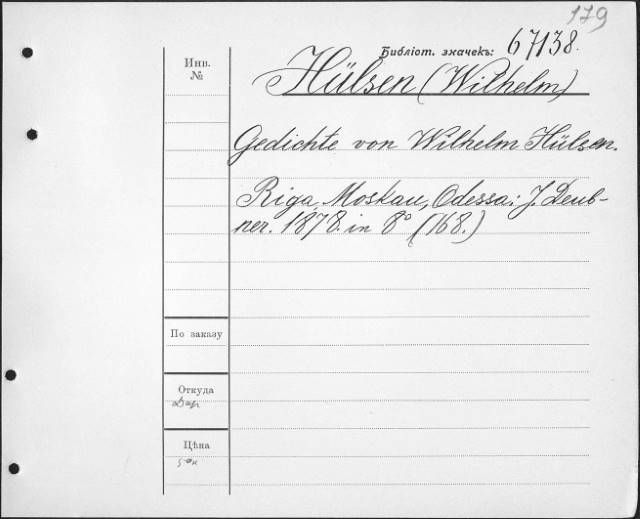 179
Библіот. значекъ: 67138.
Инв.
№
Hülsen (Wilhelm)
Gedichte von Wilhelm Hülsen.
Riga, Moskau, Odessa: J. Deub-
ner. 1878. in 8° (168.)
По заказу
Откуда
Цѣна
50к